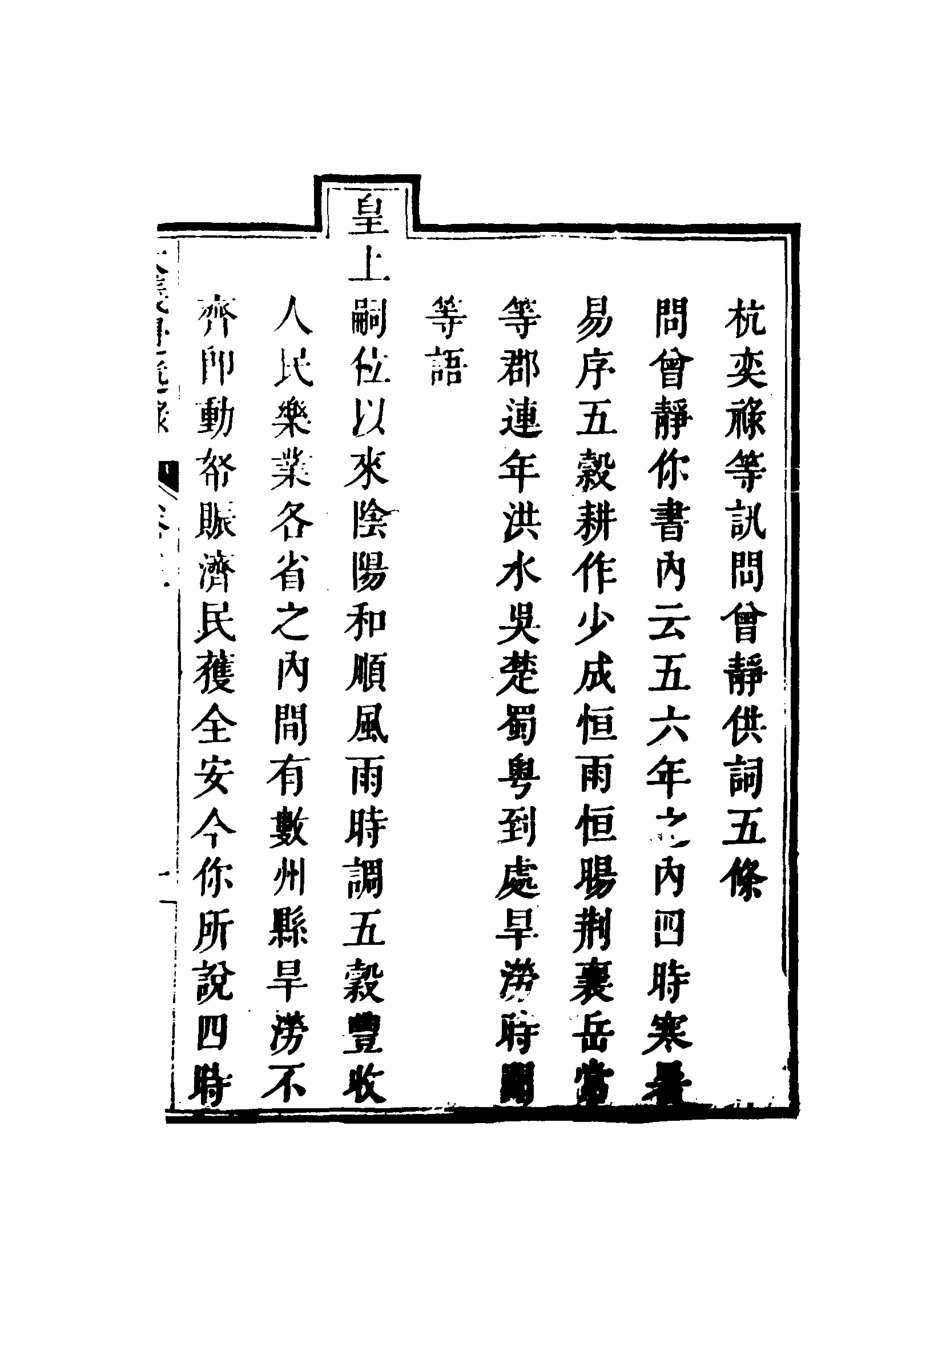 杭奕祿等訊問曾靜供詞五條
問曾靜你書內云五六年之內四時寒暑
易序五穀耕作少成恒雨恒暘荆襄岳常
等郡連年洪水吳楚蜀粤到處旱澇時聞
等語
皇上嗣位以來陰陽和順風雨時調五穀豐收
人民樂業各省之內間有數州縣旱澇不
齊即動帑賑濟民獲全安今你所說四時
大義覺迷錄 卷三 一